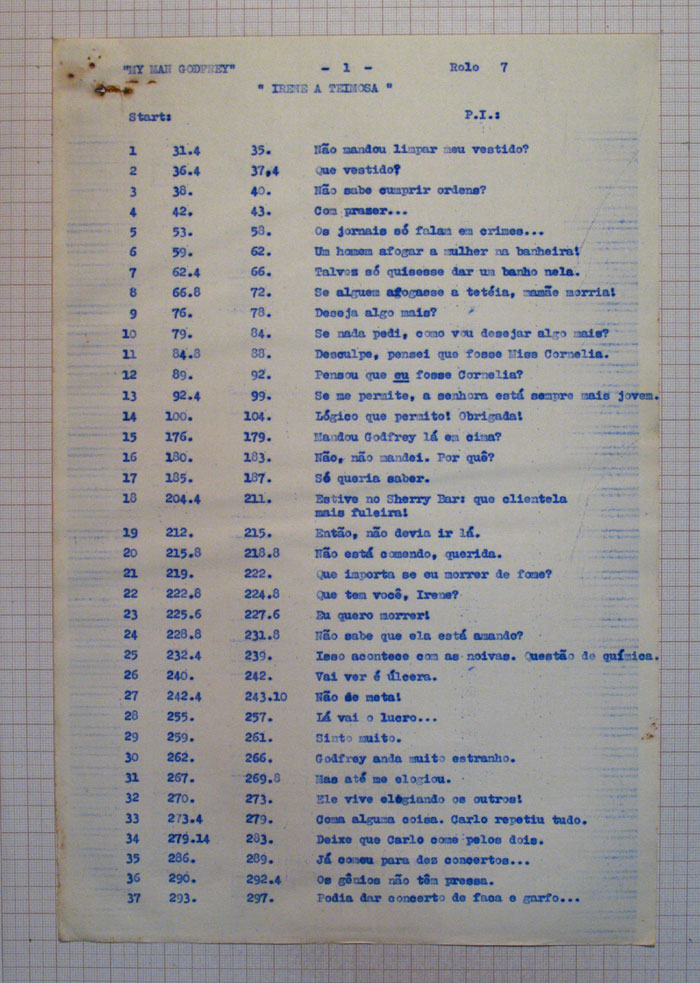 "MY MAN GODFREY" - 1 - Rolo 7
" IRENE A TEIMOSA "
Start: P.I.:
1 31.4 35. Não mandou limpar meu vestido?
2 36.4 37,4 Que vestido?
3 38. 40. Não sabe cumprir ordens?
4 42. 43. Com prazer...
5 53. 58. Os jornais só falam em crimes...
6 59. 62. Um homem afogar a mulher na banheira!
7 62.4 66. Talvez só quisesse dar um banho nela.
8 66.8 72. Se alguem afogasse a tetéia, mamãe morria!
9 76. 78. Deseja algo mais?
10 79. 84. Se nada pedi, como vou desejar algo mais?
11 84.8 88. Desculpe, pensei que fosse Miss Cornelia.
12 89. 92. Pensou que eu fosse Cornelia?
13 92.4 99. Se me permite, a senhora está sempre mais jovem.
14 100. 104. Lógico que permito! Obrigada!
15 176. 179. Mandou Godfrey lá em cima?
16 180. 183. Não, não mandei. Por quê?
17 185. 187. Só queria saber.
18 204.4 211. Estive no Sherry Bar: que clientela
mais fuleira!
19 212. 215. Então, não devia ir lá.
20 215.8 218.8 Não está comendo, querida.
21 219. 222. Que importa se eu morrer de fome?
22 222.8 224.8 Que tem você, Irene?
23 225.6 227.6 Eu quero morrer!
24 228.8 231.8 Não sabe que ela está amando?
25 232.4 239. Isso acontece com as noivas. Questão de química.
26 240. 242. Vai ver é úlcera.
27 242.4 243.10 Não se meta!
28 255. 257. Lá vai o lucro...
29 259. 261. Sinto muito.
30 262. 266. Godfrey anda muito estranho.
31 267. 269.8 Mas até me elogiou.
32 270. 273. Ele vive elogiando os outros!
33 273.4 279. Coma alguma coisa. Carlo repetiu tudo.
34 279.14 283. Deixe que Carlo come pelos dois.
35 286. 289. Já comeu para dez concertos...
36 290. 292.4 Os gênios não têm pressa.
37 293. 297. Podia dar concerto de faca e garfo...